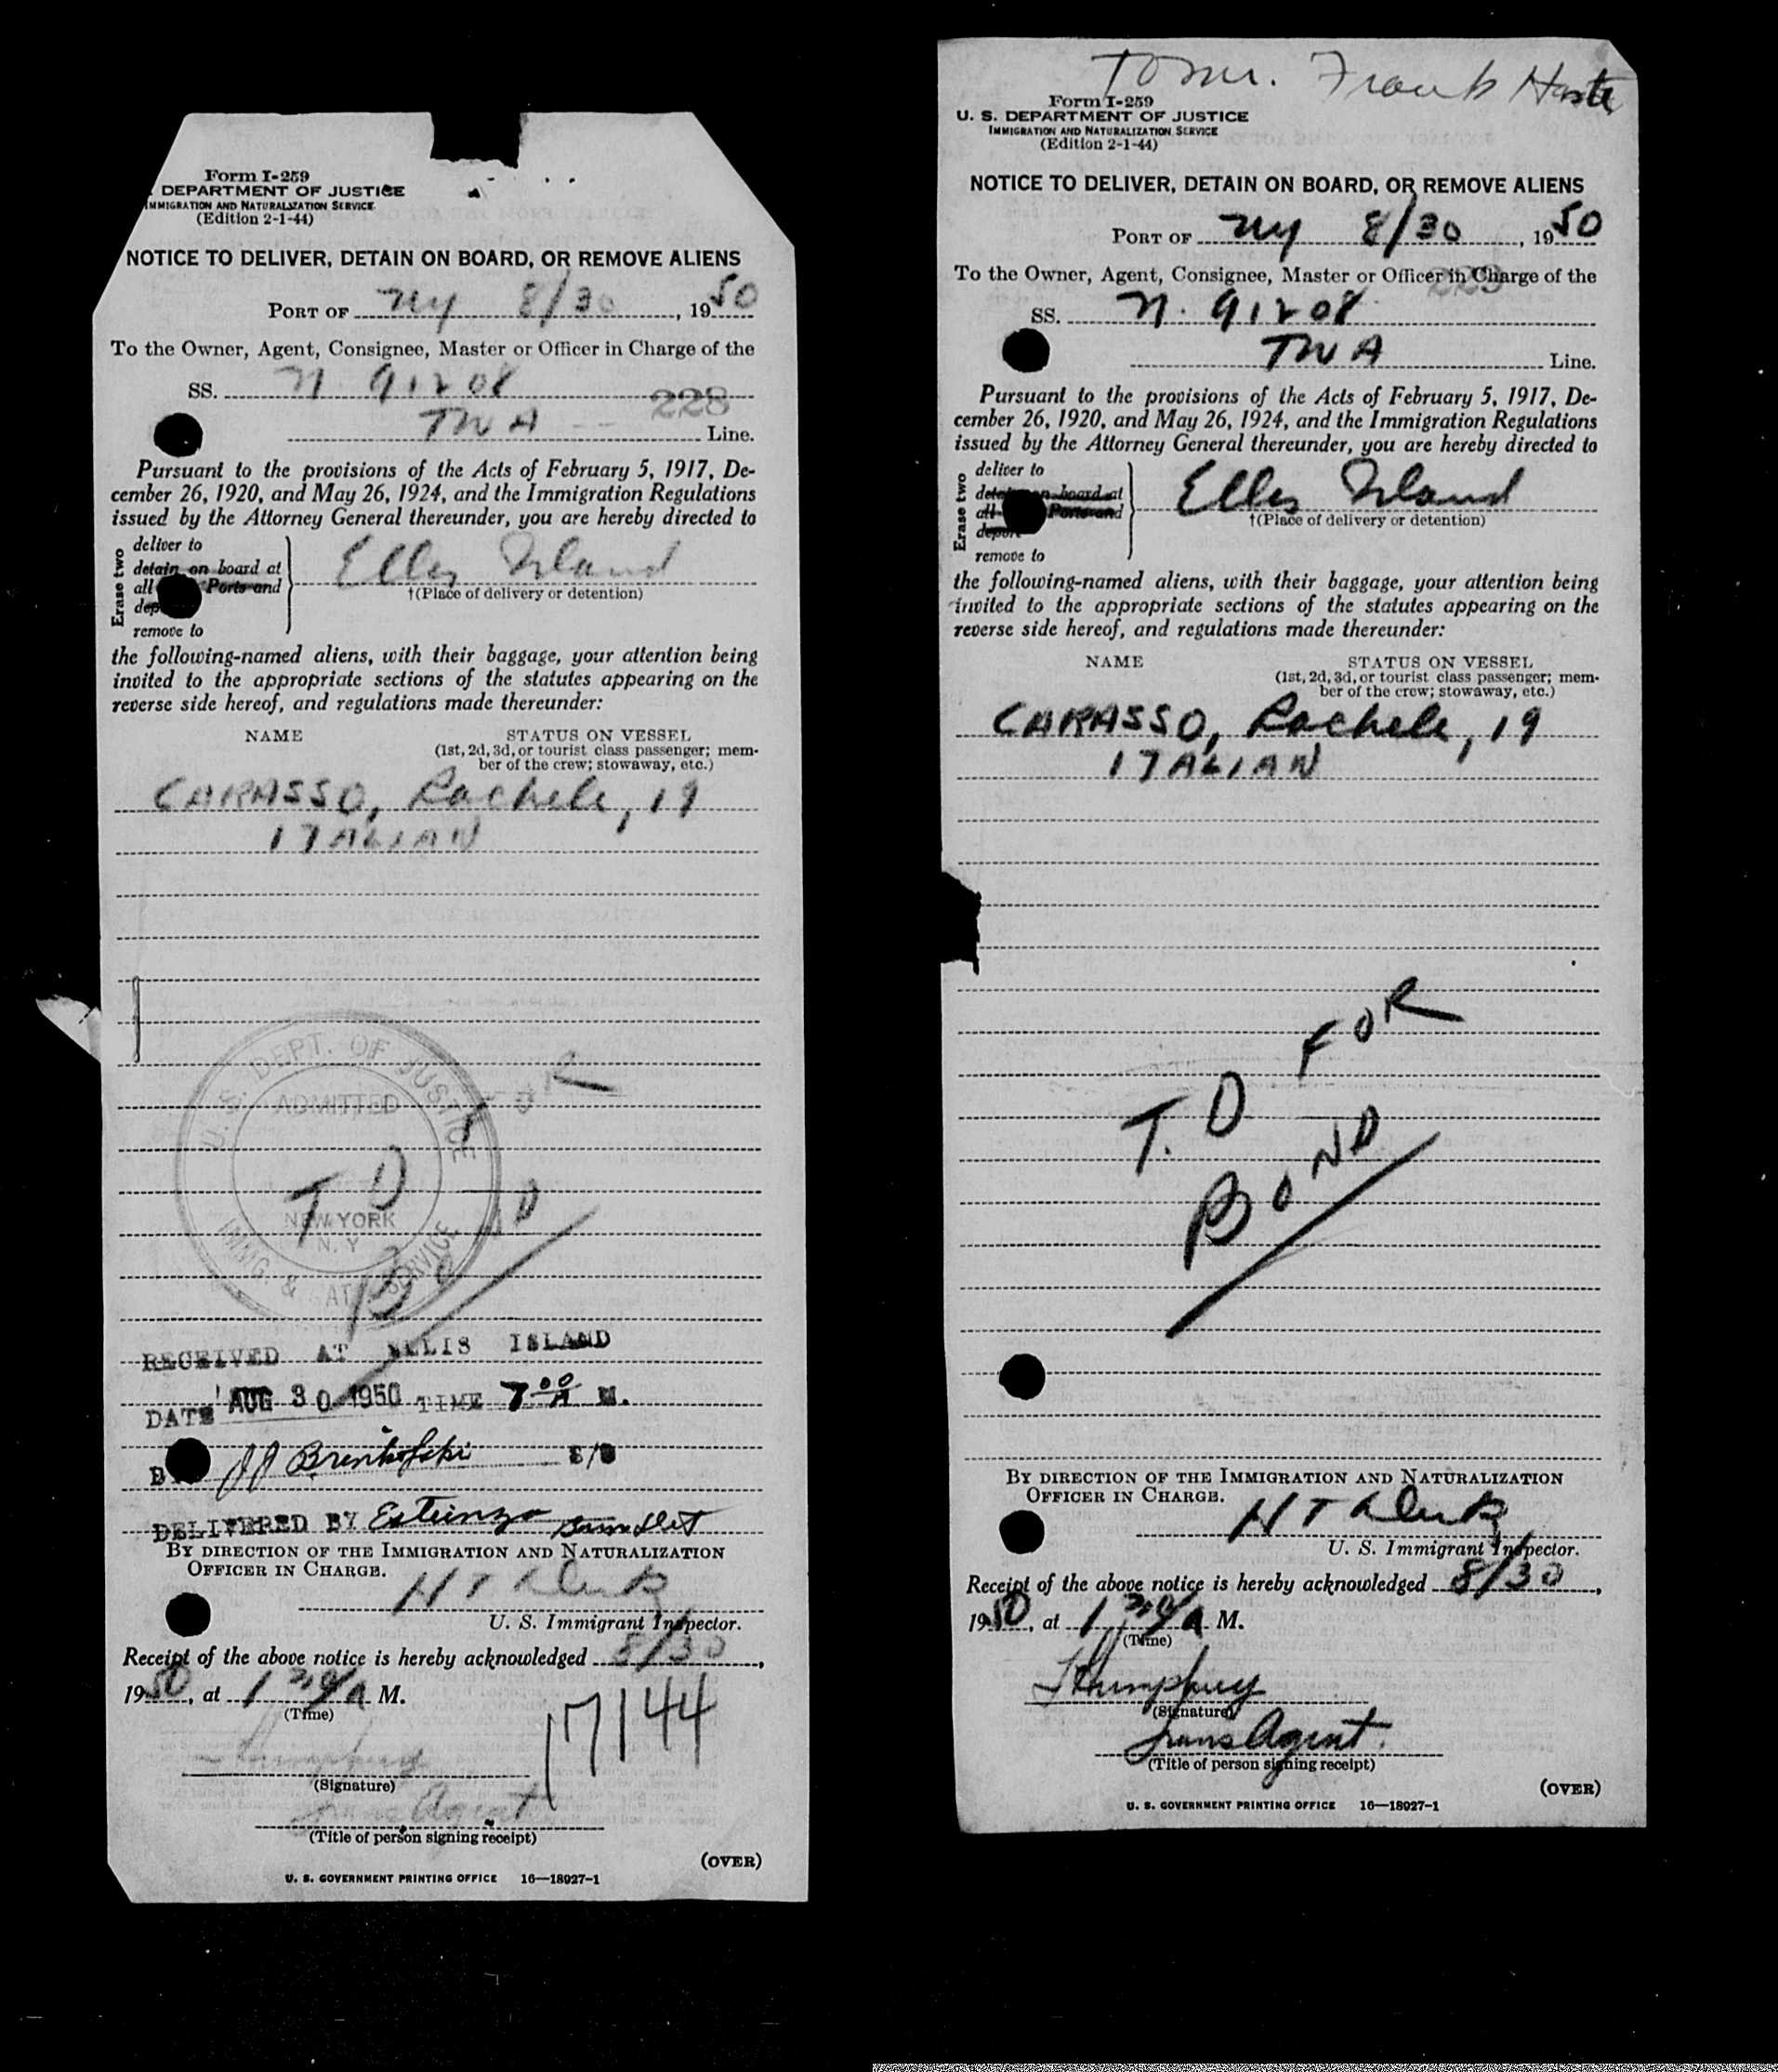 Form I-259
DEPARTMENT OF JUSTICE
IMMIGRATION AND NATURALIZATION SERVICE
(Edition 2-1-44)
NOTICE TO DELIVER, DETAIN ON BOARD, OR REMOVE ALIENS
PORT OF NY 8/30, 1950
To the Owner, Agent, Consignee, Master or Officer in Charge of the
SS. N. 91208
228
TWA Line.
Pursuant to the provisions of the Acts of February 5, 1917, De-
cember 26, 1920, and May 26, 1924, and the Immigration Regulations
issued by the Attorney General thereunder, you are hereby directed to
Erase two
deliver to
detain on board at
all Ports and
dep
remove to
Ellis Island
†(Place of delivery or detention)
the following-named aliens, with their baggage, your attention being
invited to the appropriate sections of the statutes appearing on the
reverse side hereof, and regulations made thereunder:
NAME STATUS ON VESSEL
(1st, 2d, 3d, or tourist class passenger; mem-
ber of the crew; stowaway, etc.)
CARASSO, Rachele, 19
ITALIAN
U. S. DEPT. OF JUSTICE
ADMITTED
T D
NEW YORK
N. Y
IMMG. & NAT. SERVICE
RECEIVED AT ELLIS ISLAND
DATE AUG 30 1950 TIME 7 00 A M.
B
DELIVERED BY
BY DIRECTION OF THE IMMIGRATION AND NATURALIZATION
OFFICER IN CHARGE.
H T
U. S. Immigrant Inspector.
Receipt of the above notice is hereby acknowledged 8/30,
1950, at 1 30/A M.
(Time)
17144
Humphrey
(Signature)
Trans Agent
(Title of person signing receipt)
(OVER)
U. S. GOVERNMENT PRINTING OFFICE 16—18927-1
To Mr. Frank
Form I-259
U. S. DEPARTMENT OF JUSTICE
IMMIGRATION AND NATURALIZATION SERVICE
(Edition 2-1-44)
NOTICE TO DELIVER, DETAIN ON BOARD, OR REMOVE ALIENS
PORT OF NY 8/30, 1950
To the Owner, Agent, Consignee, Master or Officer in Charge of the
SS. N. 91208
TWA Line.
Pursuant to the provisions of the Acts of February 5, 1917, De-
cember 26, 1920, and May 26, 1924, and the Immigration Regulations
issued by the Attorney General thereunder, you are hereby directed to
Erase two
deliver to
detain on board at
all Ports and
deport
remove to
Ellis Island
†(Place of delivery or detention)
the following-named aliens, with their baggage, your attention being
invited to the appropriate sections of the statutes appearing on the
reverse side hereof, and regulations made thereunder:
NAME STATUS ON VESSEL
(1st, 2d, 3d, or tourist class passenger; mem-
ber of the crew; stowaway, etc.)
CARASSO, Rachele, 19
ITALIAN
T. D FOR
BOND
BY DIRECTION OF THE IMMIGRATION AND NATURALIZATION
OFFICER IN CHARGE.
H T
U. S. Immigrant Inspector.
Receipt of the above notice is hereby acknowledged 8/30,
1950, at 1 30/A M.
(Time)
Humphrey
(Signature)
Trans Agent.
(Title of person signing receipt)
(OVER)
U. S. GOVERNMENT PRINTING OFFICE 16—18927-1